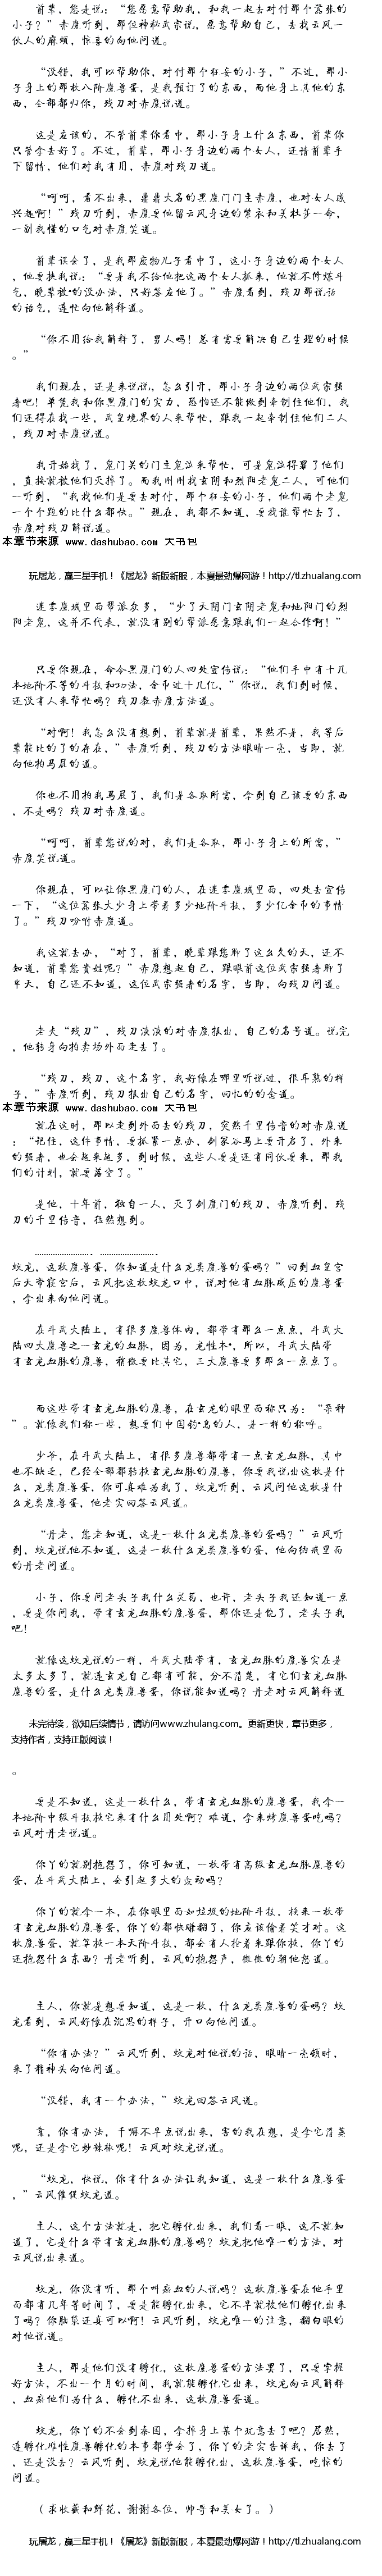 前辈，您是说：“您愿意帮助我，和我一起去对付那个嚣张的
小子？”赤魔听到，那位神秘武宗说，愿意帮助自己，去找云风一
伙人的麻烦，惊喜的向他问道。
“没错，我可以帮助你，对付那个狂妄的小子，”不过，那小
子身上的那枚八阶魔兽蛋，是我预订了的东西，而他身上其他的东
西，全部都归你，残刀对赤魔说道。
这是应该的，不管前辈你看中，那小子身上什么东西，前辈你
只管拿去好了。不过，前辈，那小子身边的两个女人，还请前辈手
下留情，他们对我有用，赤魔对残刀道。
“呵呵，看不出来，鼎鼎大名的黑魔门门主赤魔，也对女人感
兴趣啊！”残刀听到，赤魔要他留云风身边的紫衣和美杜莎一命，
一副我懂的口气对赤魔笑道。
前辈误会了，是我那废物儿子看中了，这小子身边的两个女人
，他要挟我说：“要是我不给他把这两个女人抓来，他就不修炼斗
气，晚辈被*的没办法，只好答应他了。”赤魔看到，残刀那说话
的语气，连忙向他解释道。
“你不用给我解释了，男人吗！总有需要解决自己生理的时候
。”
我们现在，还是来说说，怎么引开，那小子身边的两位武宗强
者吧！单凭我和你黑魔门的实力，恐怕还不能做到牵制住他们，我
们还得在找一些，武皇境界的人来帮忙，跟我一起牵制住他们二人
，残刀对赤魔说道。
我开始找了，鬼门关的门主鬼泣来帮忙，可是鬼泣得罪了他们
，直接就被他们灭掉了。而我刚刚找玄阴和烈阳老鬼二人，可他们
一听到，“我找他们是要去对付，那个狂妄的小子，他们两个老鬼
一个个跑的比什么都快。”现在，我都不知道，要找谁帮忙去了，
赤魔对残刀解说道。
本章节来源 www.dashubao.com 大书包
玩屠龙，赢三星手机！《屠龙》新版新服，本夏最劲爆网游！http://tl.zhualang.com
迷雾魔城里面帮派众多，“少了天阴门玄阴老鬼和地阳门的烈
阳老鬼，这并不代表，就没有别的帮派愿意跟我们一起合作啊！”
只要你现在，命令黑魔门的人四处宣传说：“他们手中有十几
本地阶不等的斗技和功法，金币过十几亿，”你说，我们到时候，
还没有人来帮忙吗？残刀教赤魔方法道。
“对啊！我怎么没有想到，前辈就是前辈，果然不是，我等后
辈能比的了的存在，”赤魔听到，残刀的方法眼睛一亮，当即，就
向他拍马屁的道。
你也不用拍我马屁了，我们是各取所需，拿到自己该要的东西
，不是吗？残刀对赤魔道。
“呵呵，前辈您说的对，我们是各取，那小子身上的所需，”
赤魔笑说道。
你现在，可以让你黑魔门的人，在迷雾魔城里面，四处去宣传
一下，“这位嚣张大少身上带着多少地阶斗技，多少亿金币的事情
了。”残刀吩咐赤魔道。
我这就去办，“对了，前辈，晚辈跟您聊了这么久的天，还不
知道，前辈您贵姓呢？”赤魔想起自己，跟眼前这位武宗强者聊了
半天，自己还不知道，这位武宗强者的名字，当即，向残刀问道。
老夫“残刀”，残刀淡淡的对赤魔报出，自己的名号道。说完
，他转身向拍卖场外面走去了。
“残刀，残刀，这个名字，我好像在哪里听说过，很耳熟的样
子，”赤魔听到，残刀报出自己的名字，回忆的的念道。
本章节来源 www.dashubao.com 大书包
就在这时，那以走到外面去的残刀，突然千里传音的对赤魔道
：“记住，这件事情，要抓紧一点办，剑冢谷马上要开启了，外来
的强者，也会越来越多，到时候，这些人要是还有同伙要来，那我
们的计划，就要落空了。”
是他，十年前，独自一人，灭了剑魔门的残刀，赤魔听到，残
刀的千里传音，猛然想到。
………………………. ……………………….
蛟龙，这枚魔兽蛋，你知道是什么龙类魔兽的蛋吗？”回到血皇宫
后天帝寝宫后，云风把这枚蛟龙口中，说对他有血脉威压的魔兽蛋
，拿出来向他问道。
在斗武大陆上，有很多魔兽体内，都带有那么一点点，斗武大
陆四大魔兽之一玄龙的血脉，因为，龙性本*，所以，斗武大陆带
有玄龙血脉的魔兽，稍微要比其它，三大魔兽要多那么一点点了。
而这些带有玄龙血脉的魔兽，在玄龙的眼里面称只为：“杂种
”。就像我们称一些，想要们中国钓*岛的人，是一样的称呼。
少爷，在斗武大陆上，有很多魔兽都带有一点玄龙血脉，其中
也不缺乏，已经全部都转换玄龙血脉的魔兽，你要我说出这枚是什
么，龙类魔兽蛋，你可真难为我了，蛟龙听到，云风问他这枚是什
么龙类魔兽蛋，他老实回答云风道。
“丹老，您老知道，这是一枚什么龙类魔兽的蛋吗？”云风听
到，蛟龙说他不知道，这是一枚什么龙类魔兽的蛋，他向纳戒里面
的丹老问道。
小子，你要问老头子我什么灵药，也许，老头子我还知道一点
，要是你问我，带有玄龙血脉的魔兽蛋，那你还是饶了，老头子我
吧！
就像这蛟龙说的一样，斗武大陆带有，玄龙血脉的魔兽实在是
太多太多了，就连玄龙自己都有可能，分不清楚，有它们玄龙血脉
魔兽的蛋，是什么龙类魔兽蛋，你说能知道吗？丹老对云风解释道
未完待续，欲知后续情节，请访问www.zhulang.com。更新更快，章节更多，
支持作者，支持正版阅读！
。
要是不知道，这是一枚什么，带有玄龙血脉的魔兽蛋，我拿一
本地阶中级斗技换它来有什么用处啊？难道，拿来烤魔兽蛋吃吗？
云风对丹老说道。
你丫的就别抱怨了，你可知道，一枚带有高级玄龙血脉魔兽的
蛋，在斗武大陆上，会引起多大的轰动吗？
你丫的就拿一本，在你眼里面如垃圾的地阶斗技，换来一枚带
有玄龙血脉的魔兽蛋，你丫的都快赚翻了，你应该偷着笑才对。这
枚魔兽蛋，就算换一本天阶斗技，都会有人抢着来跟你换，你丫的
还抱怨什么东西？丹老听到，云风的抱怨声，微微的朝他怒道。
主人，你就是想要知道，这是一枚，什么龙类魔兽的蛋吗？蛟
龙看到，云风好像在沉思的样子，开口向他问道。
“你有办法？”云风听到，蛟龙对他说的话，眼睛一亮顿时，
来了精神头向他问道。
“没错，我有一个办法，”蛟龙回答云风道。
靠，你有办法，干嘛不早点说出来，害的我在想，是拿它清蒸
呢，还是拿它炒辣椒呢！云风对蛟龙说道。
“蛟龙，快说，你有什么办法让我知道，这是一枚什么魔兽蛋
，”云风催促蛟龙道。
主人，这个方法就是，把它孵化出来，我们看一眼，这不就知
道了，它是什么带有玄龙血脉的魔兽吗？蛟龙把他唯一的方法，对
云风说出来道。
蛟龙，你没有听，那个叫痴血的人说吗？这枚魔兽蛋在他手里
面都有几年等时间了，要是能孵化出来，它不早就被他们孵化出来
了吗？你脑袋还真可以啊！云风听到，蛟龙唯一的注意，翻白眼的
对他说道。
主人，那是他们没有孵化，这枚魔兽蛋的方法罢了，只要掌握
好方法，不出一个月的时间，我就能孵化它出来，蛟龙向云风解释
，血痴他们为什么，孵化不出来，这枚魔兽蛋道。
蛟龙，你丫的不会到泰国，拿掉身上某个玩意去了吧？居然，
连孵化雌性魔兽孵化的本事都学会了，你丫的老实告诉我，你去了
，还是没去？云风听到，蛟龙说他能孵化出，这枚魔兽蛋，吃惊的
问道。
（求收藏和鲜花，谢谢各位，帅哥和美女了。）
玩屠龙，赢三星手机！《屠龙》新版新服，本夏最劲爆网游！http://tl.zhualang.com